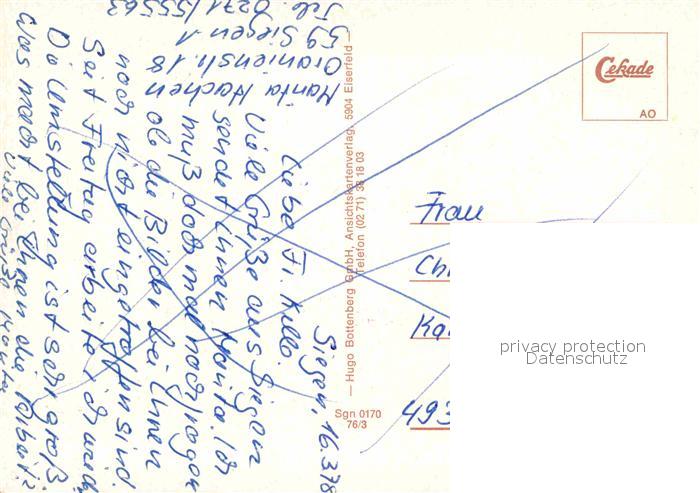 Siegen, 16.3.78
Liebe Fr. Killo
Viele Grüße aus Siegen
sendet Ihnen Manta. Ich
muß doch mal nachfragen
ob die Bilder bei Ihnen
noch nicht eingetroffen sind.
Seit Freitag arbeite
Die Umstellung ist sehr groß.
Was macht bei Ihnen die Arbeit?
Viele Grüße Manta
Hachen
Oranienstr. 18
59 Siegen 1
Tel. 0271/55563
— Hugo Bottenberg GmbH, Ansichtskartenverlag, 5904 Eiserfeld
Telefon (02 71) 38 18 03
Sgn 0170
76/3
Cekade
AO
Frau
privacy protection
Datenschutz